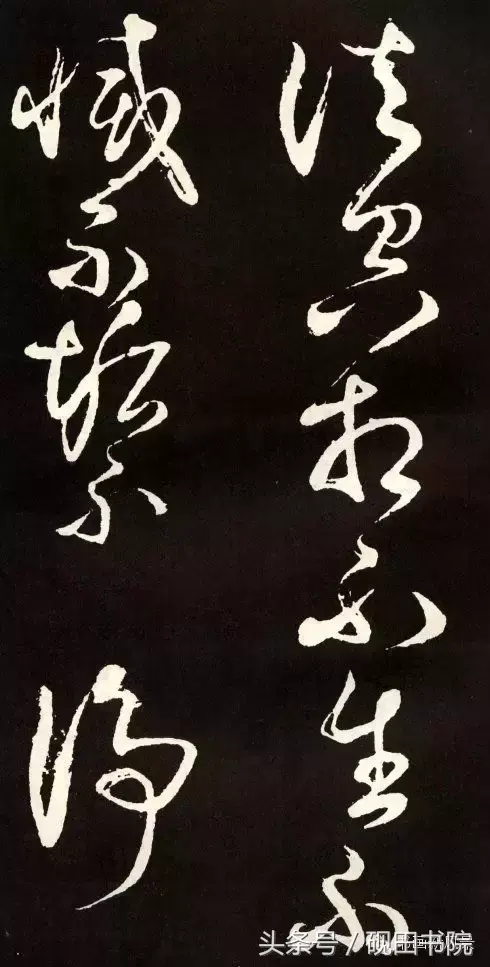 法空相不生不
滅不垢不淨
头条号 / 砚田书院